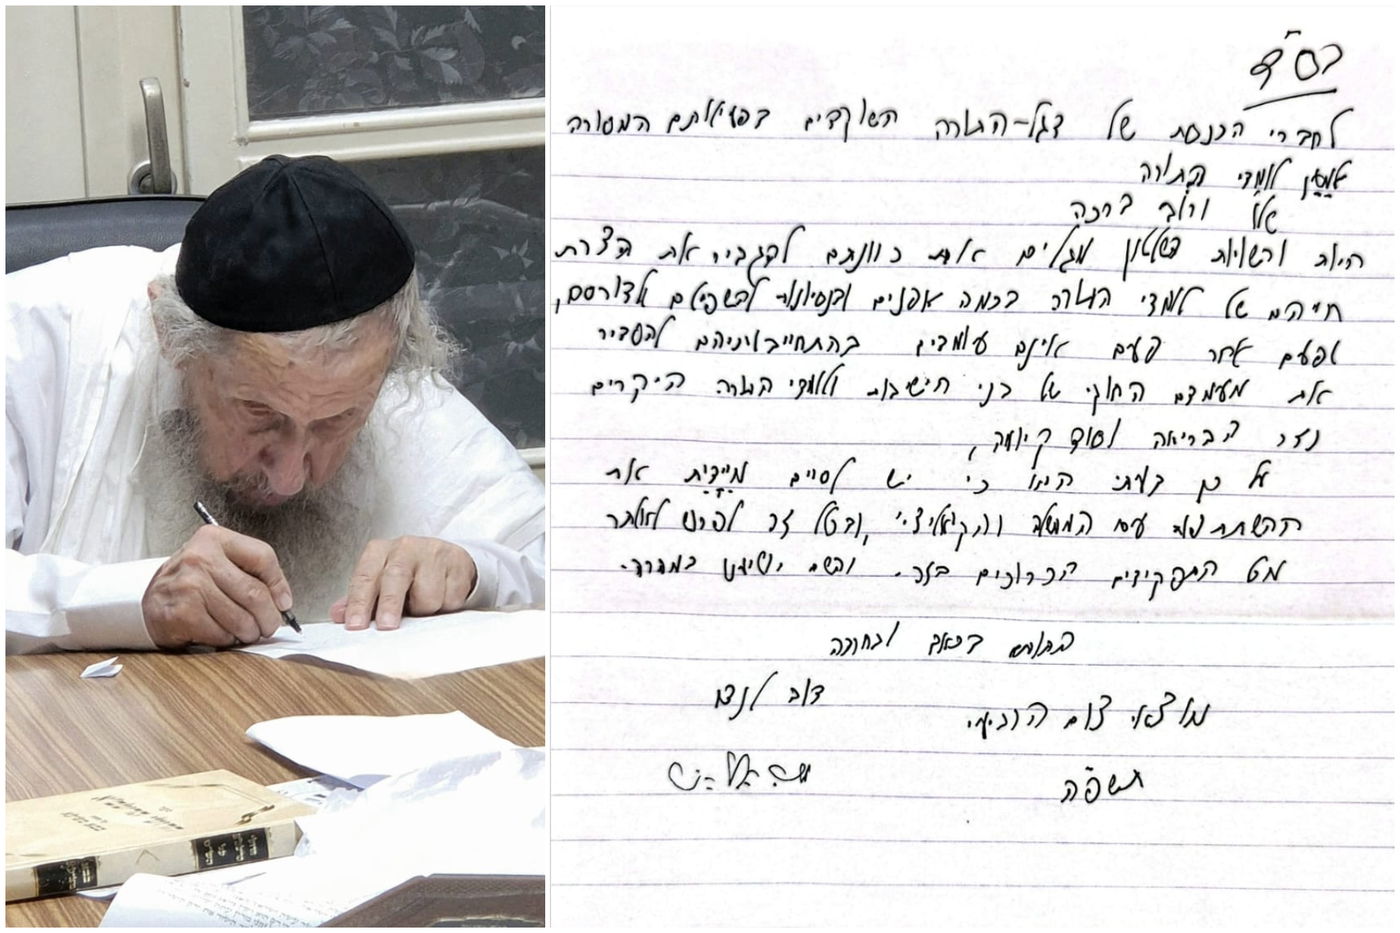 בס"ד
לחברי הכנסת של דגל-התורה השוקדים בפעולתם המסורה
למען לומדי התורה
ורוב ברכה
היות ורשויות השלטון מגלים את כוונתם להגביר את הצרת
חייהם של לומדי התורה בכמה אפנים ובנסיונות להשפילם
ופעם אחר פעם אינם עומדים בהתחייבויותיהם להסדיר
את מעמדם החוקי של בני הישיבות ולומדי התורה היקרים
נזר הבריאה וסוד קיומה,
על כן דעתי היא כי יש לסיים מיידית את
ההשתתפות עם הממשלה והקואליציה, ובכלל זה לפרוש לאלתר
מכל התפקידים הכרוכים בזה. והשם יושיענו במהרה.
בכאב ובחרדה
דוב לנדו
מוצאי צום הרביעי
תשפ"ה